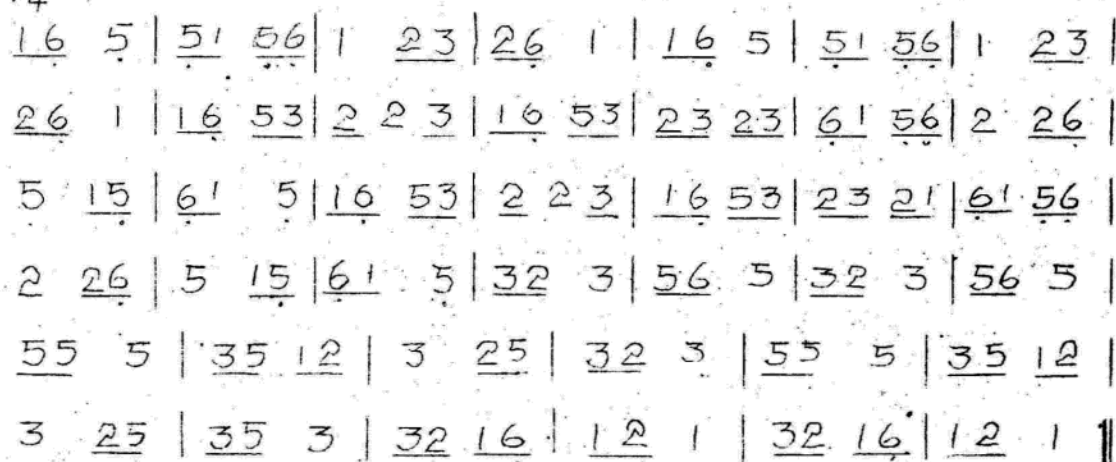 4
16 5 | 51 56 | 1 23 | 26 1 | 16 5 | 51 56 | 1 23 |
26 1 | 16 53 | 2 2 3 | 16 53 | 23 23 | 61 56 | 2 26 |
5 15 | 61 5 | 16 53 | 2 2 3 | 16 53 | 23 21 | 61 56 |
2 26 | 5 15 | 61 5 | 32 3 | 56 5 | 32 3 | 56 5 |
55 5 | 35 12 | 3 25 | 32 3 | 55 5 | 35 12 |
3 25 | 35 3 | 32 16 | 12 1 | 32 16 | 12 1 ‖